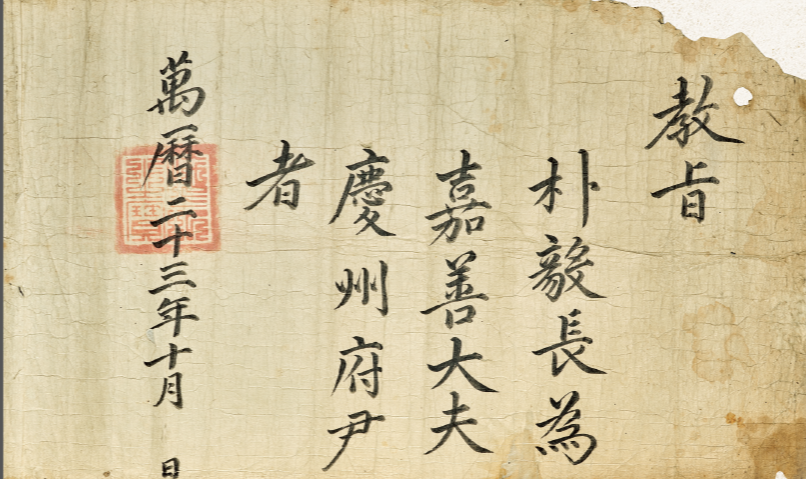 教旨
朴毅長為
嘉善大夫
慶州府尹
者
萬曆二十三年十月
日